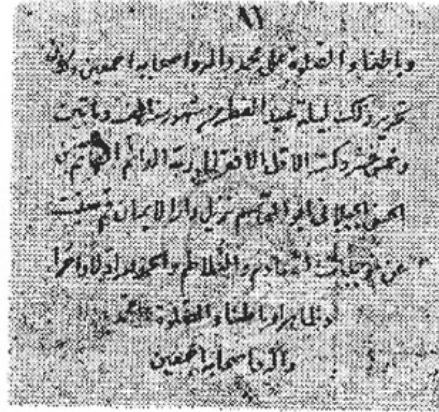 ٨٦
وباطنا والصلوة على محمد واله واصحابه اجمعين وكان
تحرير ذلك ليلة عيد الفطر من شهور سنة
وكتبه الاقل الافقر الى ربه الدائم القائم بن
الحسن الجيلاني ابو القاسم نزيل دار الايمان قم صينت
عن التصادم والتلاطم والحمد لله اولا واخرا
وظاهرا وباطنا والصلوة على محمد
واله واصحابه اجمعين